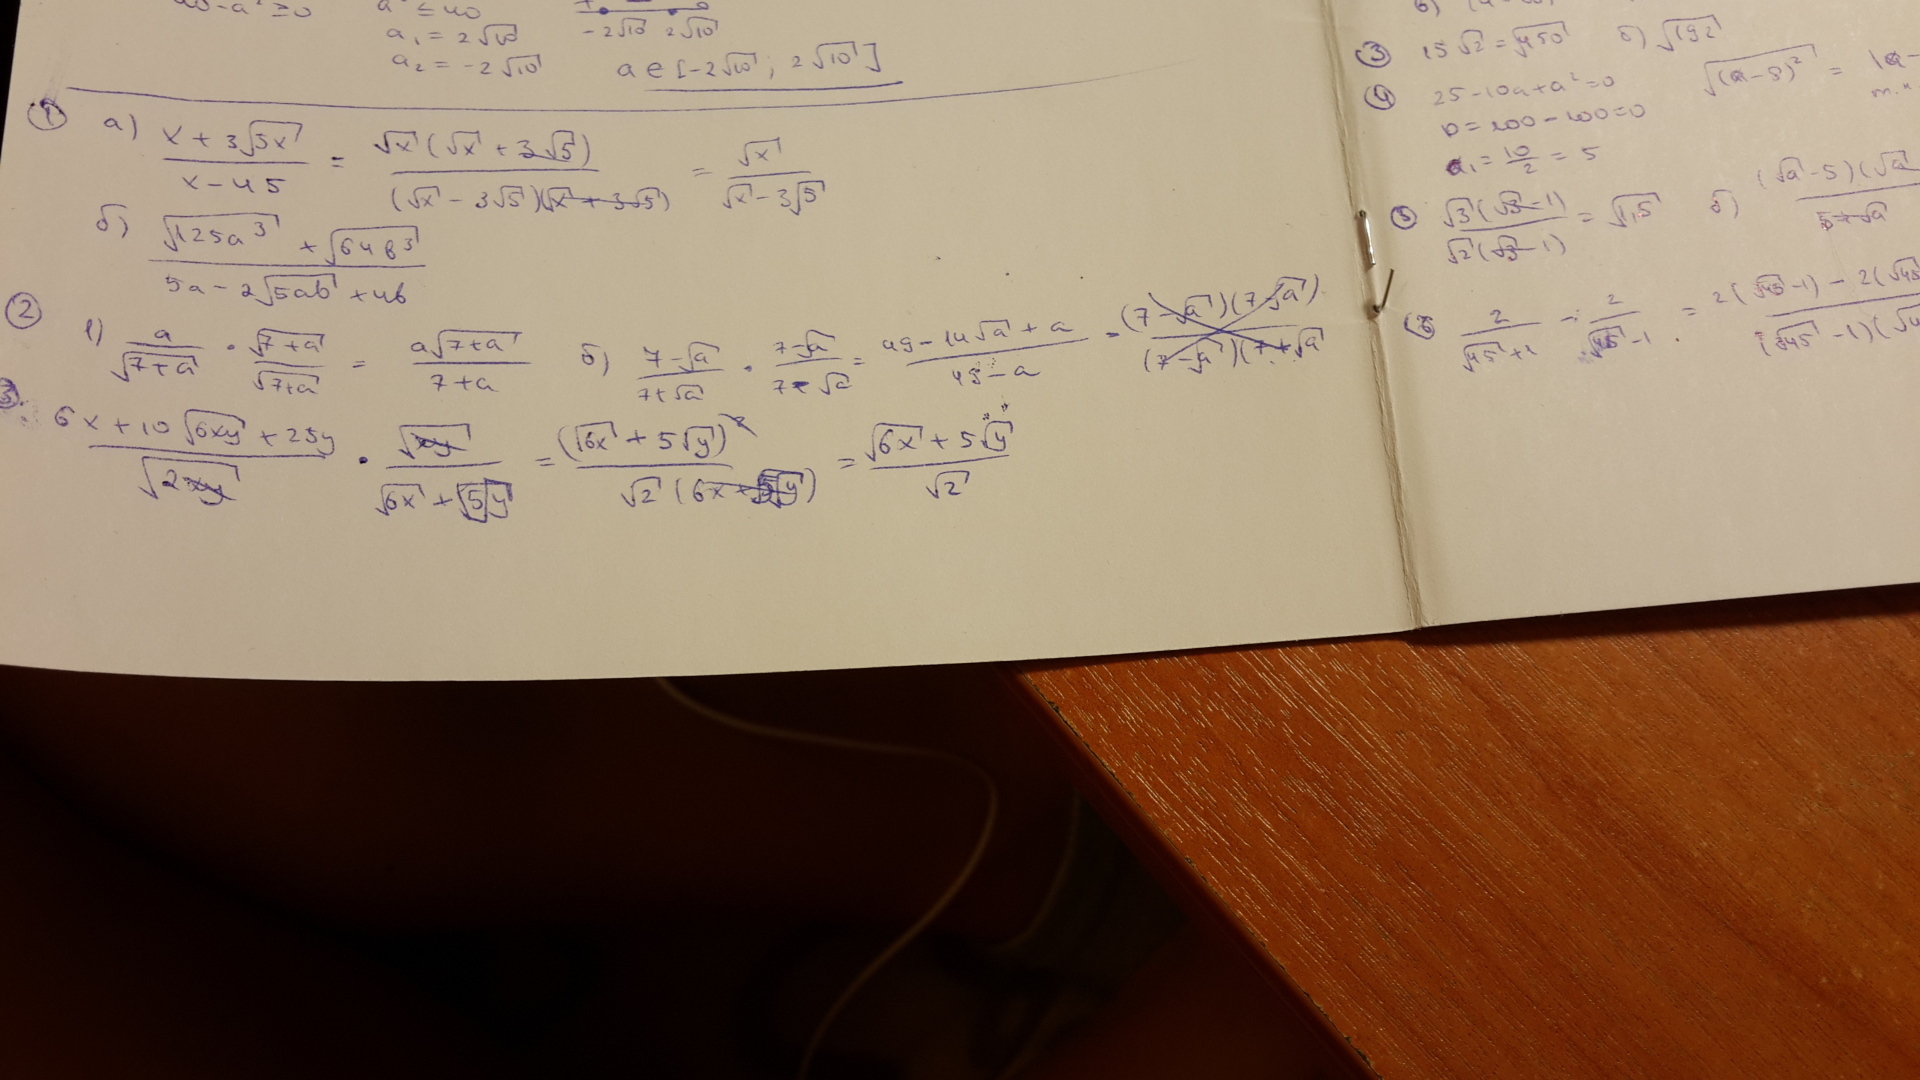 a² ≤ 40
a₁ = 2√10 -2√10 2√10
a₂ = -2√10 a ∈ [-2√10; 2√10]
① а) (x + 3√5x)/(x - 45) = (√x(√x + 3√5))/((√x - 3√5)(√x + 3√5)) = √x/(√x - 3√5)
б) (√125a³ + √64b³)/(5a - 2√5ab + 4b)
② 1) a/√7+a · √7+a/√7+a = a√7+a/(7+a) б) (7-√a)/(7+√a) · (7-√a)/(7-√a) = (49 - 14√a + a)/(49 - a) = (7-√a)(7-√a)/(7-√a)(7+√a)
3. (6x + 10√6xy + 25y)/√2xy · √xy/(√6x + √5√y) = (√6x + 5√y)²/(√2(6x + 5√y)) = (√6x + 5√y)/√2
③ 15√2 = √450 б) √192
④ 25 - 10a + a² = 0 √(a-8)² =
D = 100 - 100 = 0
a₁ = 10/2 = 5
⑤ √3(√3-1)/√2(√3-1) = √1,5 б) (√a - 5)(√a
5+√a
⑥ 2/(√45+1) - 2/(√45-1) = 2(√45-1) - 2(√45
(√45 - 1)(√4